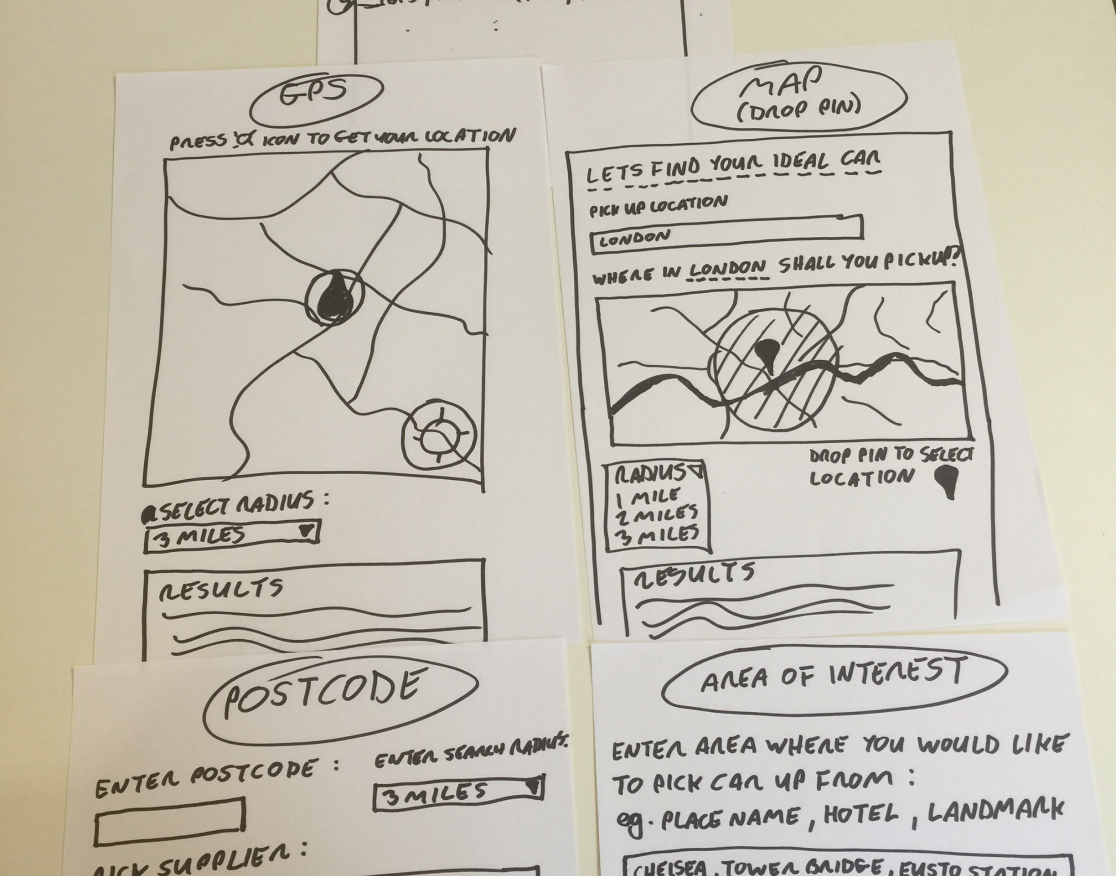 GPS
PRESS ICON TO GET YOUR LOCATION
SELECT RADIUS :
3 MILES
RESULTS
MAP
(DROP PIN)
LETS FIND YOUR IDEAL CAR
PICK UP LOCATION
LONDON
WHERE IN LONDON SHALL YOU PICKUP?
DROP PIN TO SELECT
LOCATION
RADIUS
1 MILE
2 MILES
3 MILES
RESULTS
POSTCODE
ENTER POSTCODE :
ENTER SEARCH RADIUS:
3 MILES
PICK SUPPLIER :
AREA OF INTEREST
ENTER AREA WHERE YOU WOULD LIKE
TO PICK CAR UP FROM :
eg. PLACE NAME, HOTEL, LANDMARK
CHELSEA, TOWER BRIDGE, EUSTO STATION